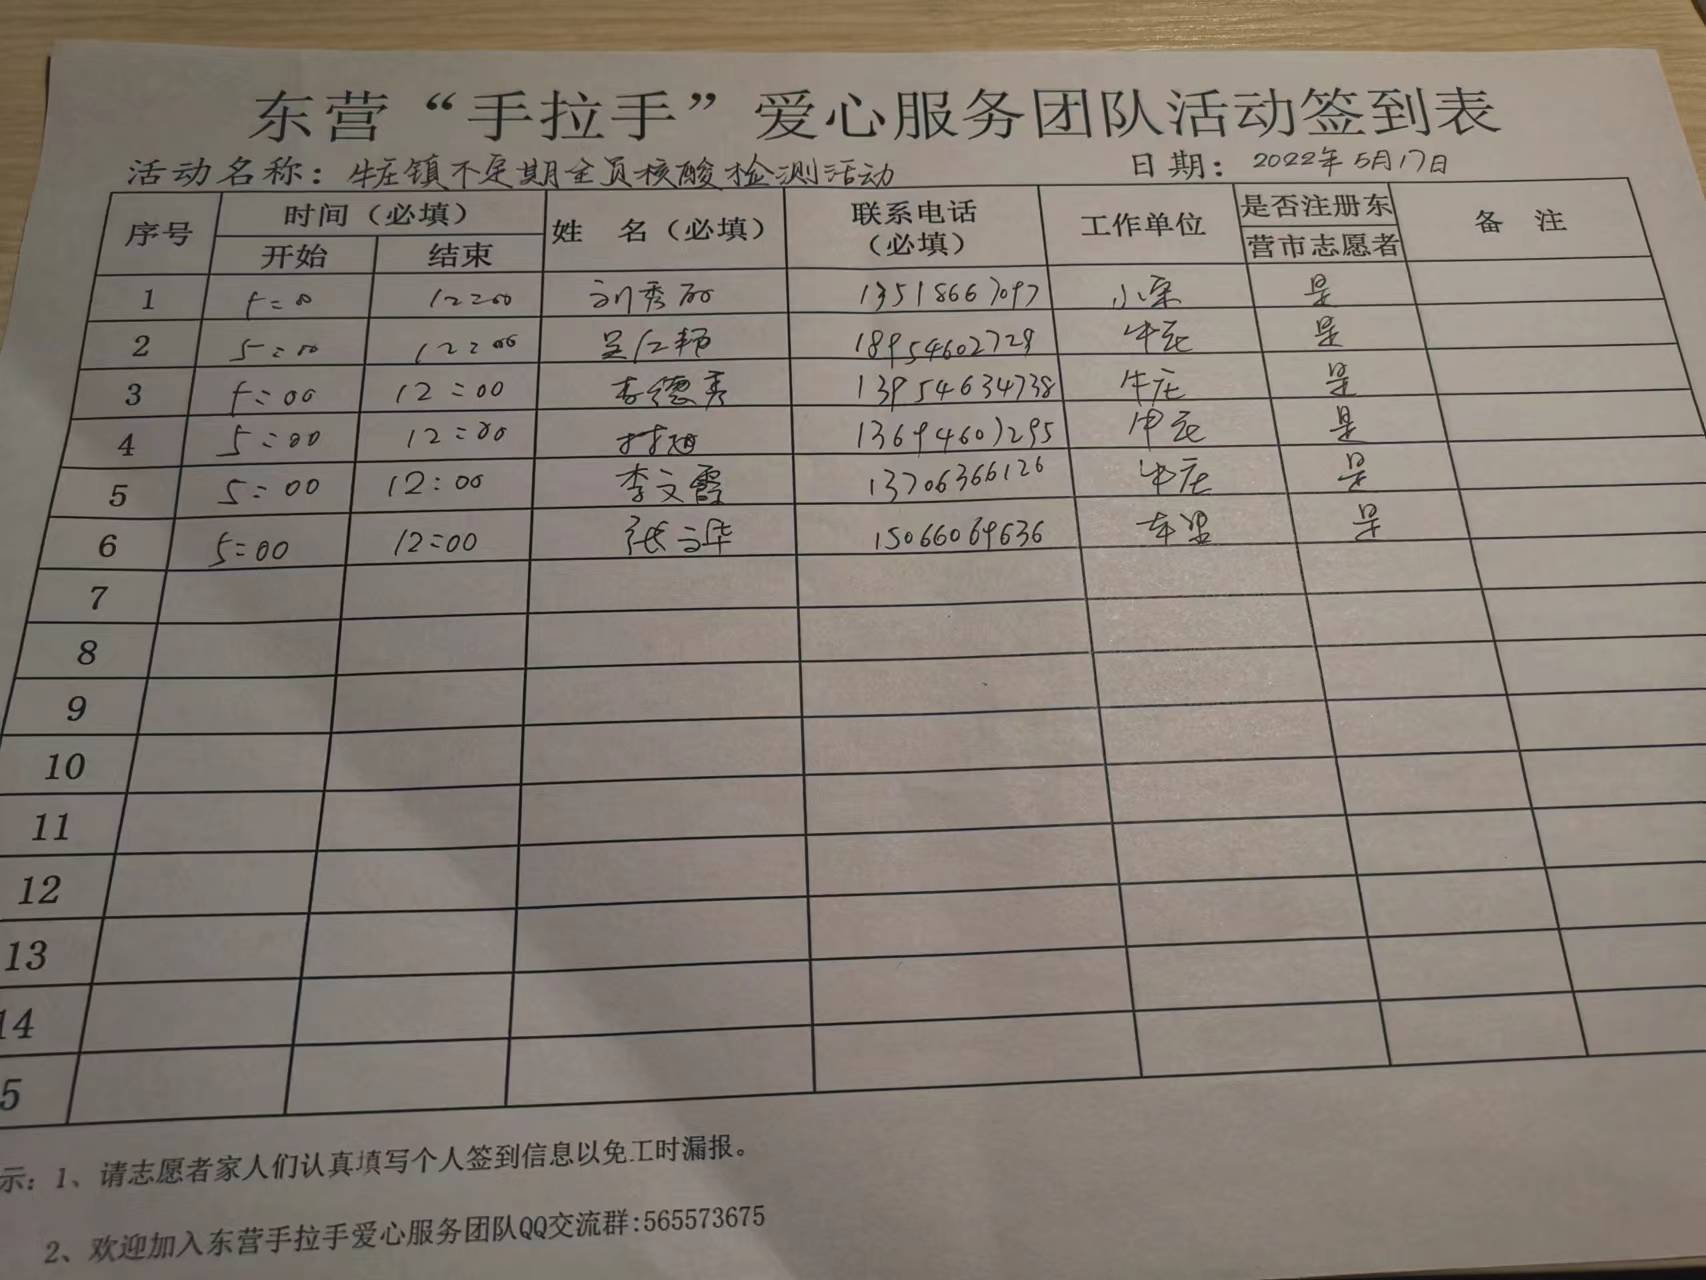 东营“手拉手”爱心服务团队活动签到表
活动名称：牛庄镇不定期全员核酸检测活动 日期：2022年5月17日
序号 时间（必填） 姓 名（必填） 联系电话（必填） 工作单位 是否注册东营市志愿者 备 注
开始 结束
1 5=00 12=00 刘秀 13518667097 是
2 5=00 12=00 18954602729 牛庄 是
3 5=00 12=00 李德秀 13954634738 牛庄 是
4 5=00 12=00 13694607295 是
5 5=00 12:00 李文霞 13706366126 牛庄 是
6 5=00 12=00 张 华 15066069636 是
7
8
9
10
11
12
13
14
5
示：1、请志愿者家人们认真填写个人签到信息以免工时漏报。
2、欢迎加入东营手拉手爱心服务团队QQ交流群:565573675